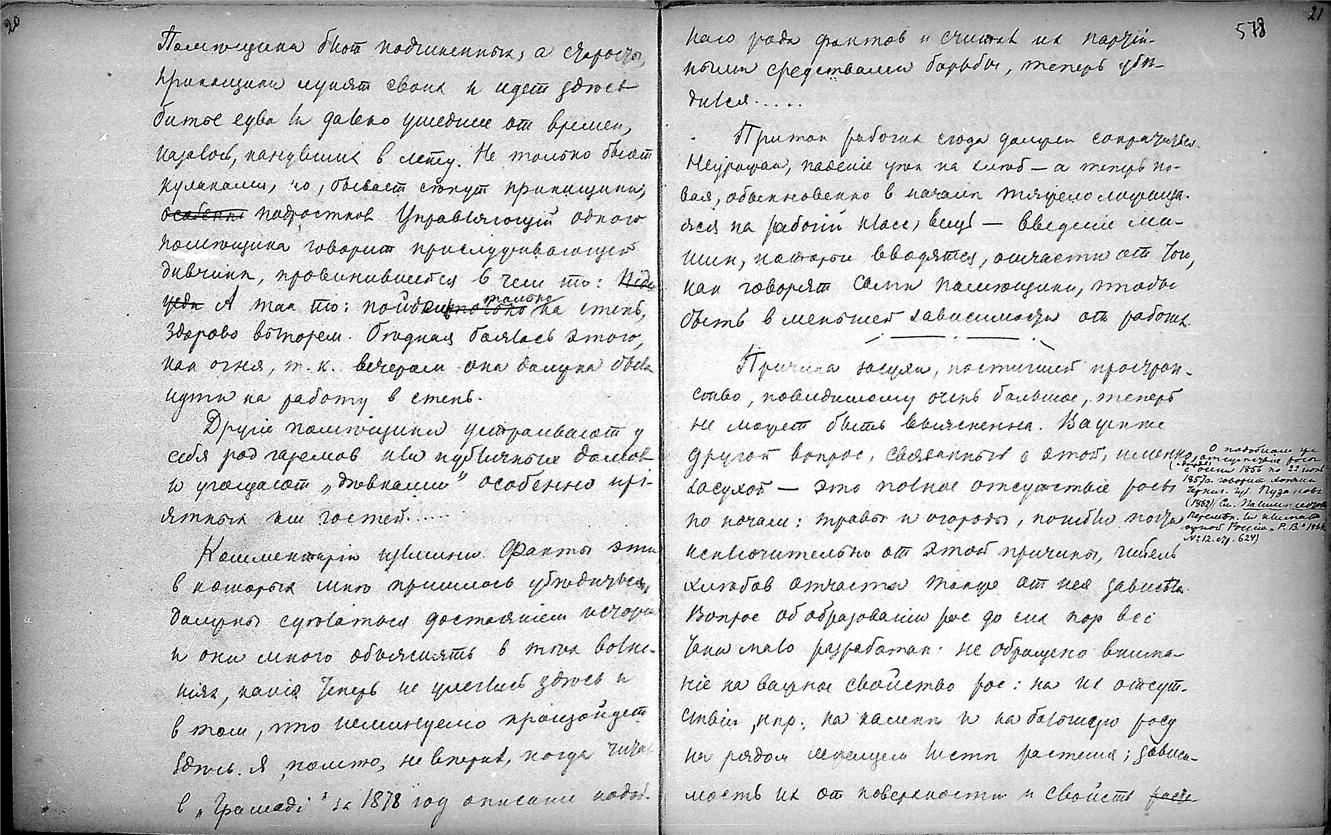 20
Помѣщики бьют подчиненных, а старосты,
прикащики лупят своих и идет здѣсь
битье едва ли давно ушедшее от времен,
казалось, канувших в лету. Не только бьют
кулаками, но, бывает сѣкут прикащики,
особенно подростков. Управляющий одного
помѣщика говорит прислуживающей
дивчинѣ, провинившейся в чем то:
А так то: пойди только на степь,
здорово выпорем. Бѣдная боялась этого,
как огня, т. к. вечером она должна была
идти на работу в степь.
Другіе помѣщики устраивают у
себя род гаремов или публичных домов
и угощают „дѣвками" особенно прі-
ятных им гостей....
Комментаріи излишни. Факты эти
в которых мнѣ пришлось убѣдиться,
должны сдѣлаться достояніем исторіи
и они много объяснят в тѣх волне-
ніях, какія теперь не улеглись здѣсь и
в том, что неминуемо произойдет
здѣсь. Я, помню, не вѣрил, когда читал
в „Громаді" за 1878 год описанія подоб-
21
578
наго рода фактов и считал их партій-
ными средствами борьбы, теперь убѣ-
дился.....
Приток рабочих сюда должен сократиться.
Неурожаи, паденіе цѣн на хлѣб — а теперь но-
вая, обыкновенно в началѣ тяжело ложаща-
яся на рабочій класс, вещь — введеніе ма-
шин, которыя вводятся, отчасти от того,
как говорят сами помѣщики, чтобы
быть в меньшей зависимости от рабочих.
Причина засухи, постигшей простран-
ство, повидимому очень большое, теперь
не может быть выяснена. Важнѣе
другой вопрос, связанный с этой, именно
засухой — это полное отсутствіе росы
по ночам: травы и огороды, погибли почти
исключительно от этой причины, гибель
хлѣбов отчасти также от нея зависѣла.
Вопрос об образованіи рос до сих пор все
таки мало разработан: не обращено внима-
ніе на важное свойство рос: на их отсут-
ствіи, нпр. на камнѣ и на большую росу
на рядом лежащем листѣ растенія; зависи-
мость их от поверхности и свойств
О подобном же
отсутствіи росы
с осени 1856 по 22 ноя
1857 г. говорит
(1862)
Россіи „Р. В." 186
№ 12. стр. 624)